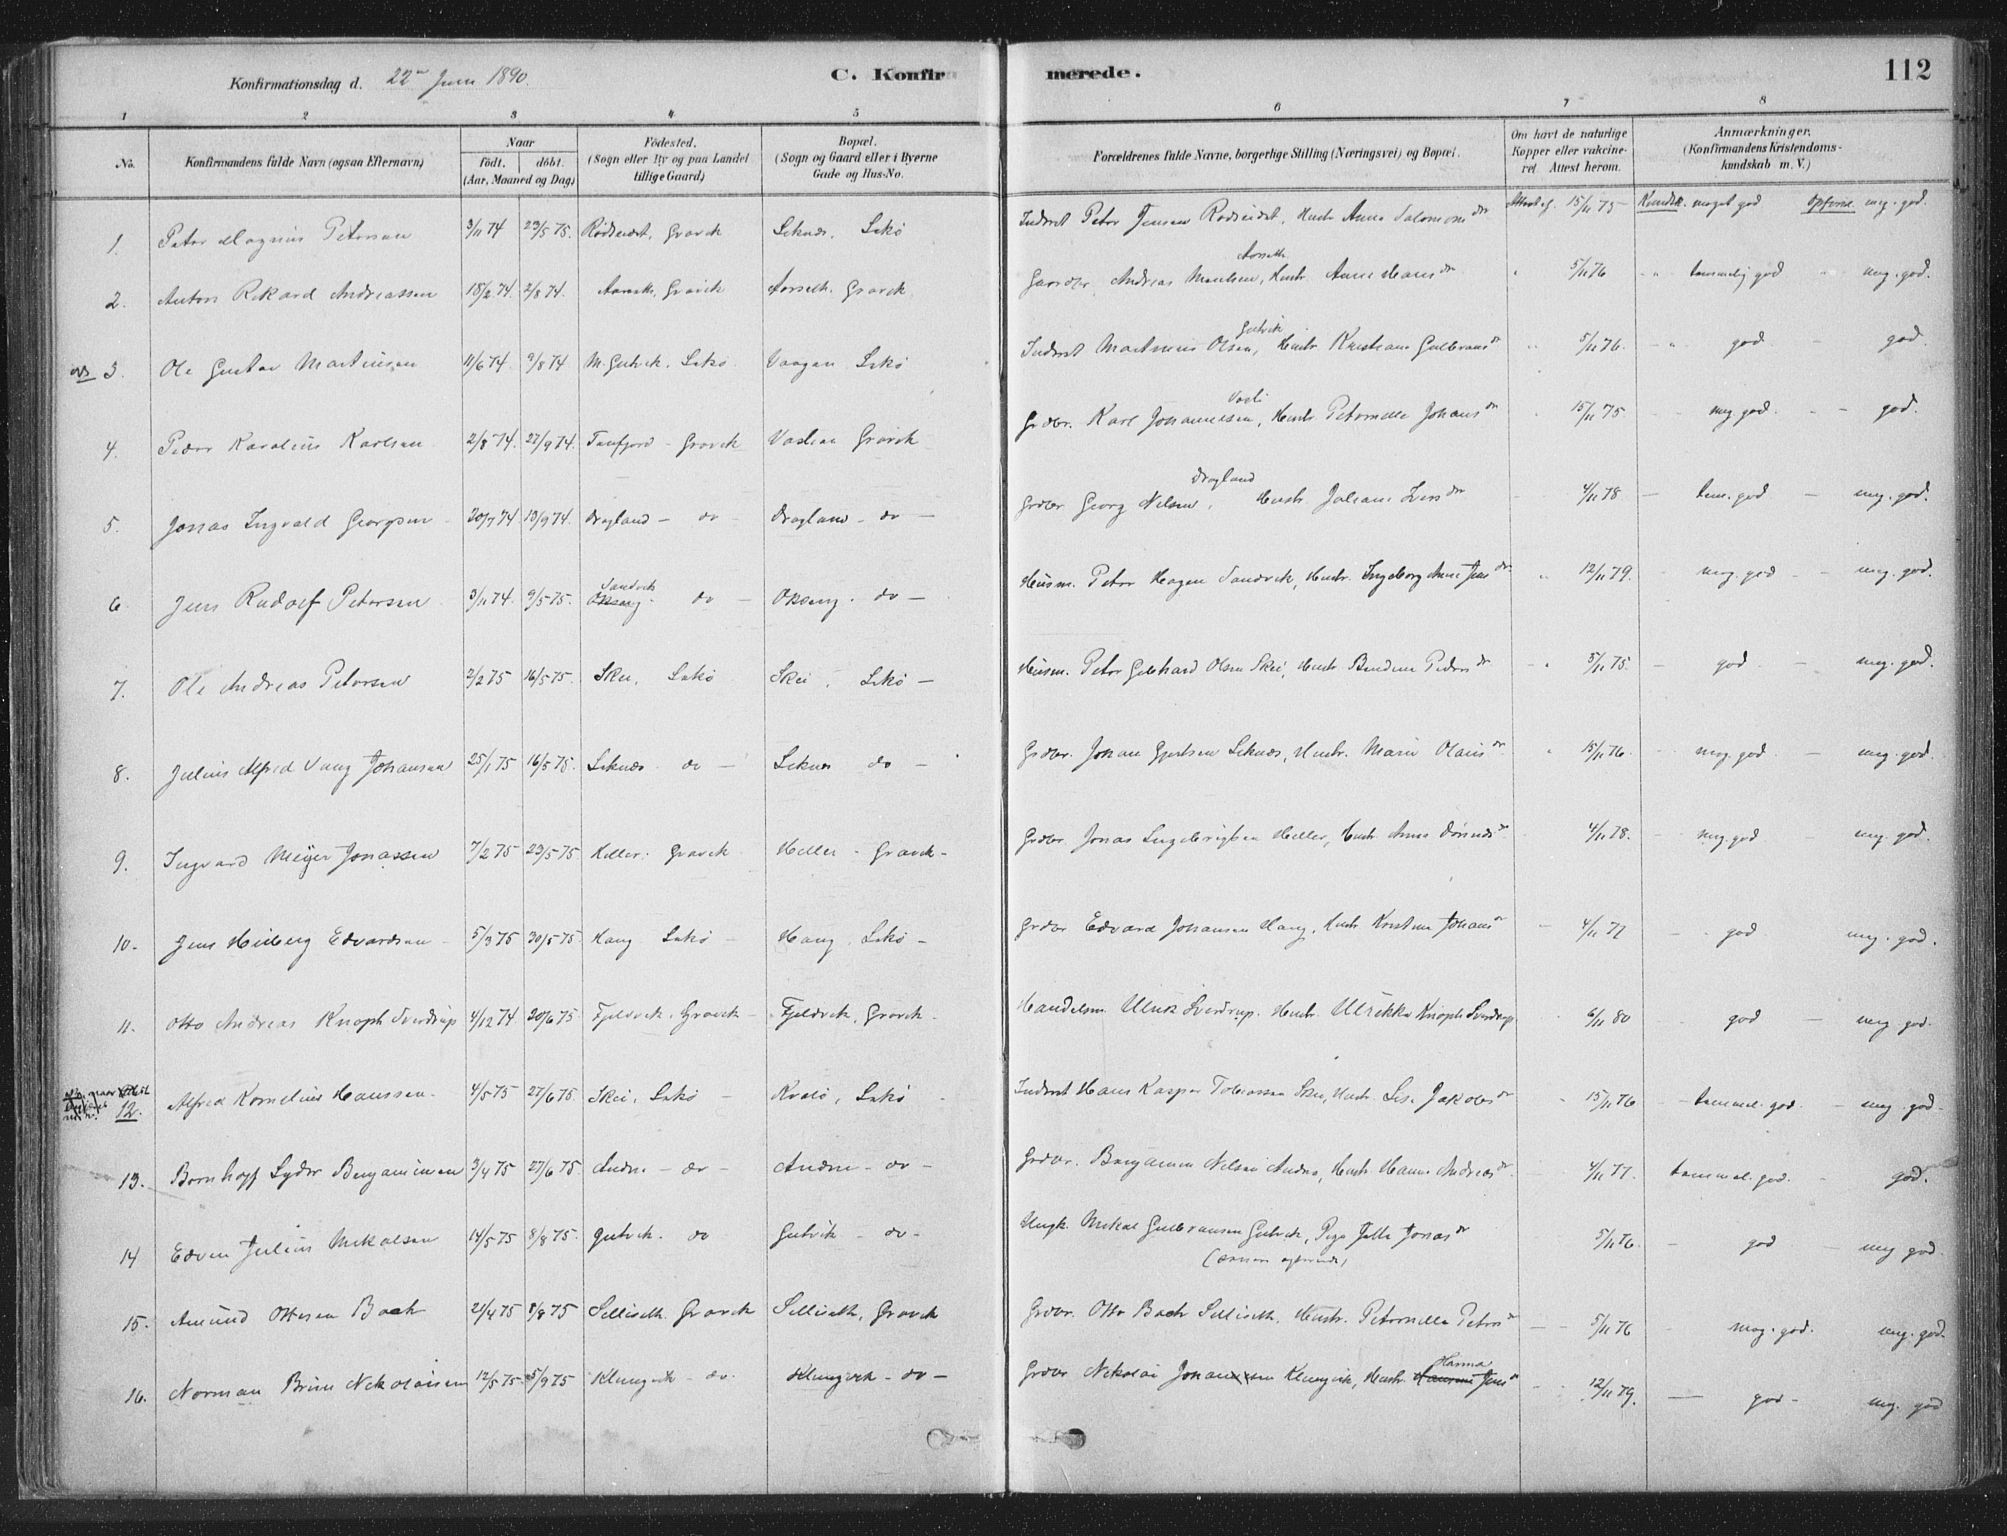 Konfirmationsdag d. 22 Juni 1890.
C. Konfirmerede.
112
1 2 3 4 5 6 7 8
No.
Konfirmandens fulde Navn (ogsaa Efternavn)
Naar
født. døbt.
(Aar, Maaned og Dag)
Fødested.
(Sogn eller By og paa Landet
tillige Gaard)
Bopæl.
(Sogn og Gaard eller i Byerne
Gade og Hus-No.
Forældrenes fulde Navne, borgerlige Stilling (Næringsvei) og Bopæl.
Om havt de naturlige
Kopper eller vakcine-
ret. Attest herom.
Anmærkninger.
(Konfirmandens Kristendoms-
kundskab m. V.)
1. Peter Magnus Petersen 3/11 74 23/5 75. Rødseidet, Gravik Leknes, Lekø Inderst Peter Jensen Rødseidet, Hustr. Anna Salomonsdr Attest af 15/11 75 Kundsk. meget god Opførsel meg. god.
2. Anton Rikard Andreassen 18/2 74. 2/8 74. Aarseth, Gravik Aarseth, Gravik Gaardbr. Andreas Aarseth, Hustr. Anne Hansdr 5/11 76 temmelig god meg. god.
3. Ole Gustav Martinsen 11/6 74. 9/8 74 M. Gutvik, Lekø Vaagan Lekø Inderst Martinus Olsen Gutvik, Hustr. Kristiane Gulbransdr 5/11 76. god god.
4. Peder Karolius Karlsen 2/8 74. 27/9 74. Gravik Gravik Grdbr. Karl Johannessen, Hustr. Petornelle Johansdr 15/11 75 meg god. god.
5. Jonas Ingvald Georgsen 20/7 74 13/9 74. Dragland - do - Dragland - do - Grdbr Georg Nilsen Dragland, Hustr. Juliane 4/11 78 tem. god meg. god.
6. Jens Rudolf Petersen 3/11 74. 9/5 75. Sandvik do - Oxeng - do - Husm. Peter Hagen Sandvik, Hustr. Ingeborg Anne Jensdr 12/11 79. meg. god meg. god.
7. Ole Andreas Petersen 2/2 75 16/5 75. Skei, Lekø Skei, Lekø - Husm. Peter Gebhard Olsen Skei, Hustr. Pedersdr 5/11 75. god meg. god.
8. Julius Alfred Vang Johansen 25/1 75 16/5 75. Leknes do - Leknes do - Grdbr. Johan Gjertsen Leknes, Hustr. Marie Olausdr 15/11 76. meg. god meg. god.
9. Ingvard Meyer Jonassen 7/2 75 23/5 75. Heller, Gravik Heller - Gravik - Grdbr Jonas Ingebrigtsen Heller, Hustr. Anne 4/11 78. meg. god meg. god.
10. Jens Heiberg Edvardsen 5/3 75 30/5 75. Haug Lekø Haug, Lekø - Grdbr Edvard Johansen Haug, Hustr Kristine Johansdr 4/11 77 god meg. god.
11. Otto Andreas Knoph Sverdrup 4/12 74 20/6 75. Fjeldvik, Gravik - Fjeldvik, Gravik. Handelsm. Ulrik Sverdrup. Hustr. Ulrikke Knoph Sverdrup. 6/11 80 god meg god.
12. Alfred Kornelius Hanssen 4/5 75 27/6 75. Skei, Lekø Lekø Inderst Hans Kasper Tobiassen Skei, Hustr. Lise Jakobsdr 15/11 76 temmel. god. meg. god.
13. Bornhoff Lyder Benjaminsen 3/4 75 27/6 75. Andne - do - Andne - do - Grdbr. Benjamin Nilsen Andnes, Hustr Hanna Andreasdr 4/11 77. temmel. god. god.
14 Edvin Julius Mikalsen 14/5 75 8/8 75. Gutvik. do Gutvik - do - Ungk. Mikal Gulbransen Gutvik, Pige Jette Jonasdr
(senere egteviede) 5/11 76. god meg god.
15. Amund Ottesen Bach 21/4 75 8/8 75 Sellisæth. Gravik Sellisæth, Gravik Grdbr. Otto Bach Sellisæth, Hustr. Petornella Petersdr 5/11 76 meg. god. meg. god.
16. Norman Brun Nikolaisen 12/5 75. 5/9 75 Klungvik - do. Klungvik - do - Grdbr Nikolai Johansen Klungvik, Hustr. Hanna Jensdr 12/11 79. god - meg. god